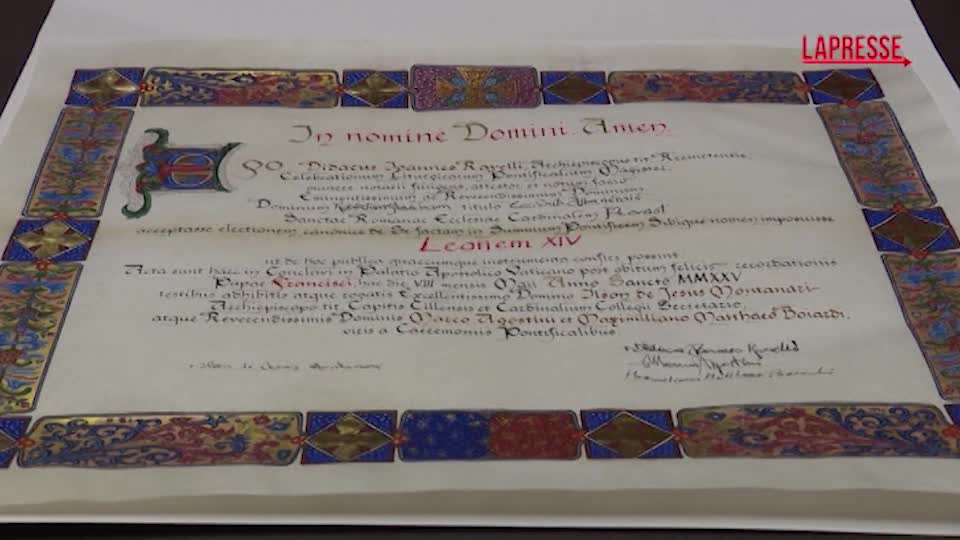 LAPRESSE
In nomine Domini. Amen.
EGO Didacus Ioannes Ravelli, Archiepiscopus tit. Recinetensis,
Celebrationum Liturgicarum Pontificalium Magister,
munere notarii fungens, attestor et notum facio
Eminentissimum ac Reverendissimum Dominum
Dominum titulo
Sanctae Romanae Ecclesiae Cardinalem Prevost
acceptasse electionem canonice de se factam in Summum Pontificem Sibique nomen imposuisse
Leonem XIV
ut de hoc publica quaecumque instrumenta confici possint.
Acta sunt haec in Conclavi in Palatio Apostolico Vaticano post obitum felicis recordationis
Papae Francisci, hac die VIII mensis Maii Anno Sancto MMXXV
testibus adhibitis atque rogatis Excellentissimo Domino Ilson de Jesus Montanari
Archiepiscopo tit. Capitis Cillensis et Cardinalium Collegii Secretario,
atque Reverendissimis Dominis Marco Agostini et Maximiliano Matthaeo Boiardi,
viris a Caeremoniis Pontificalibus.